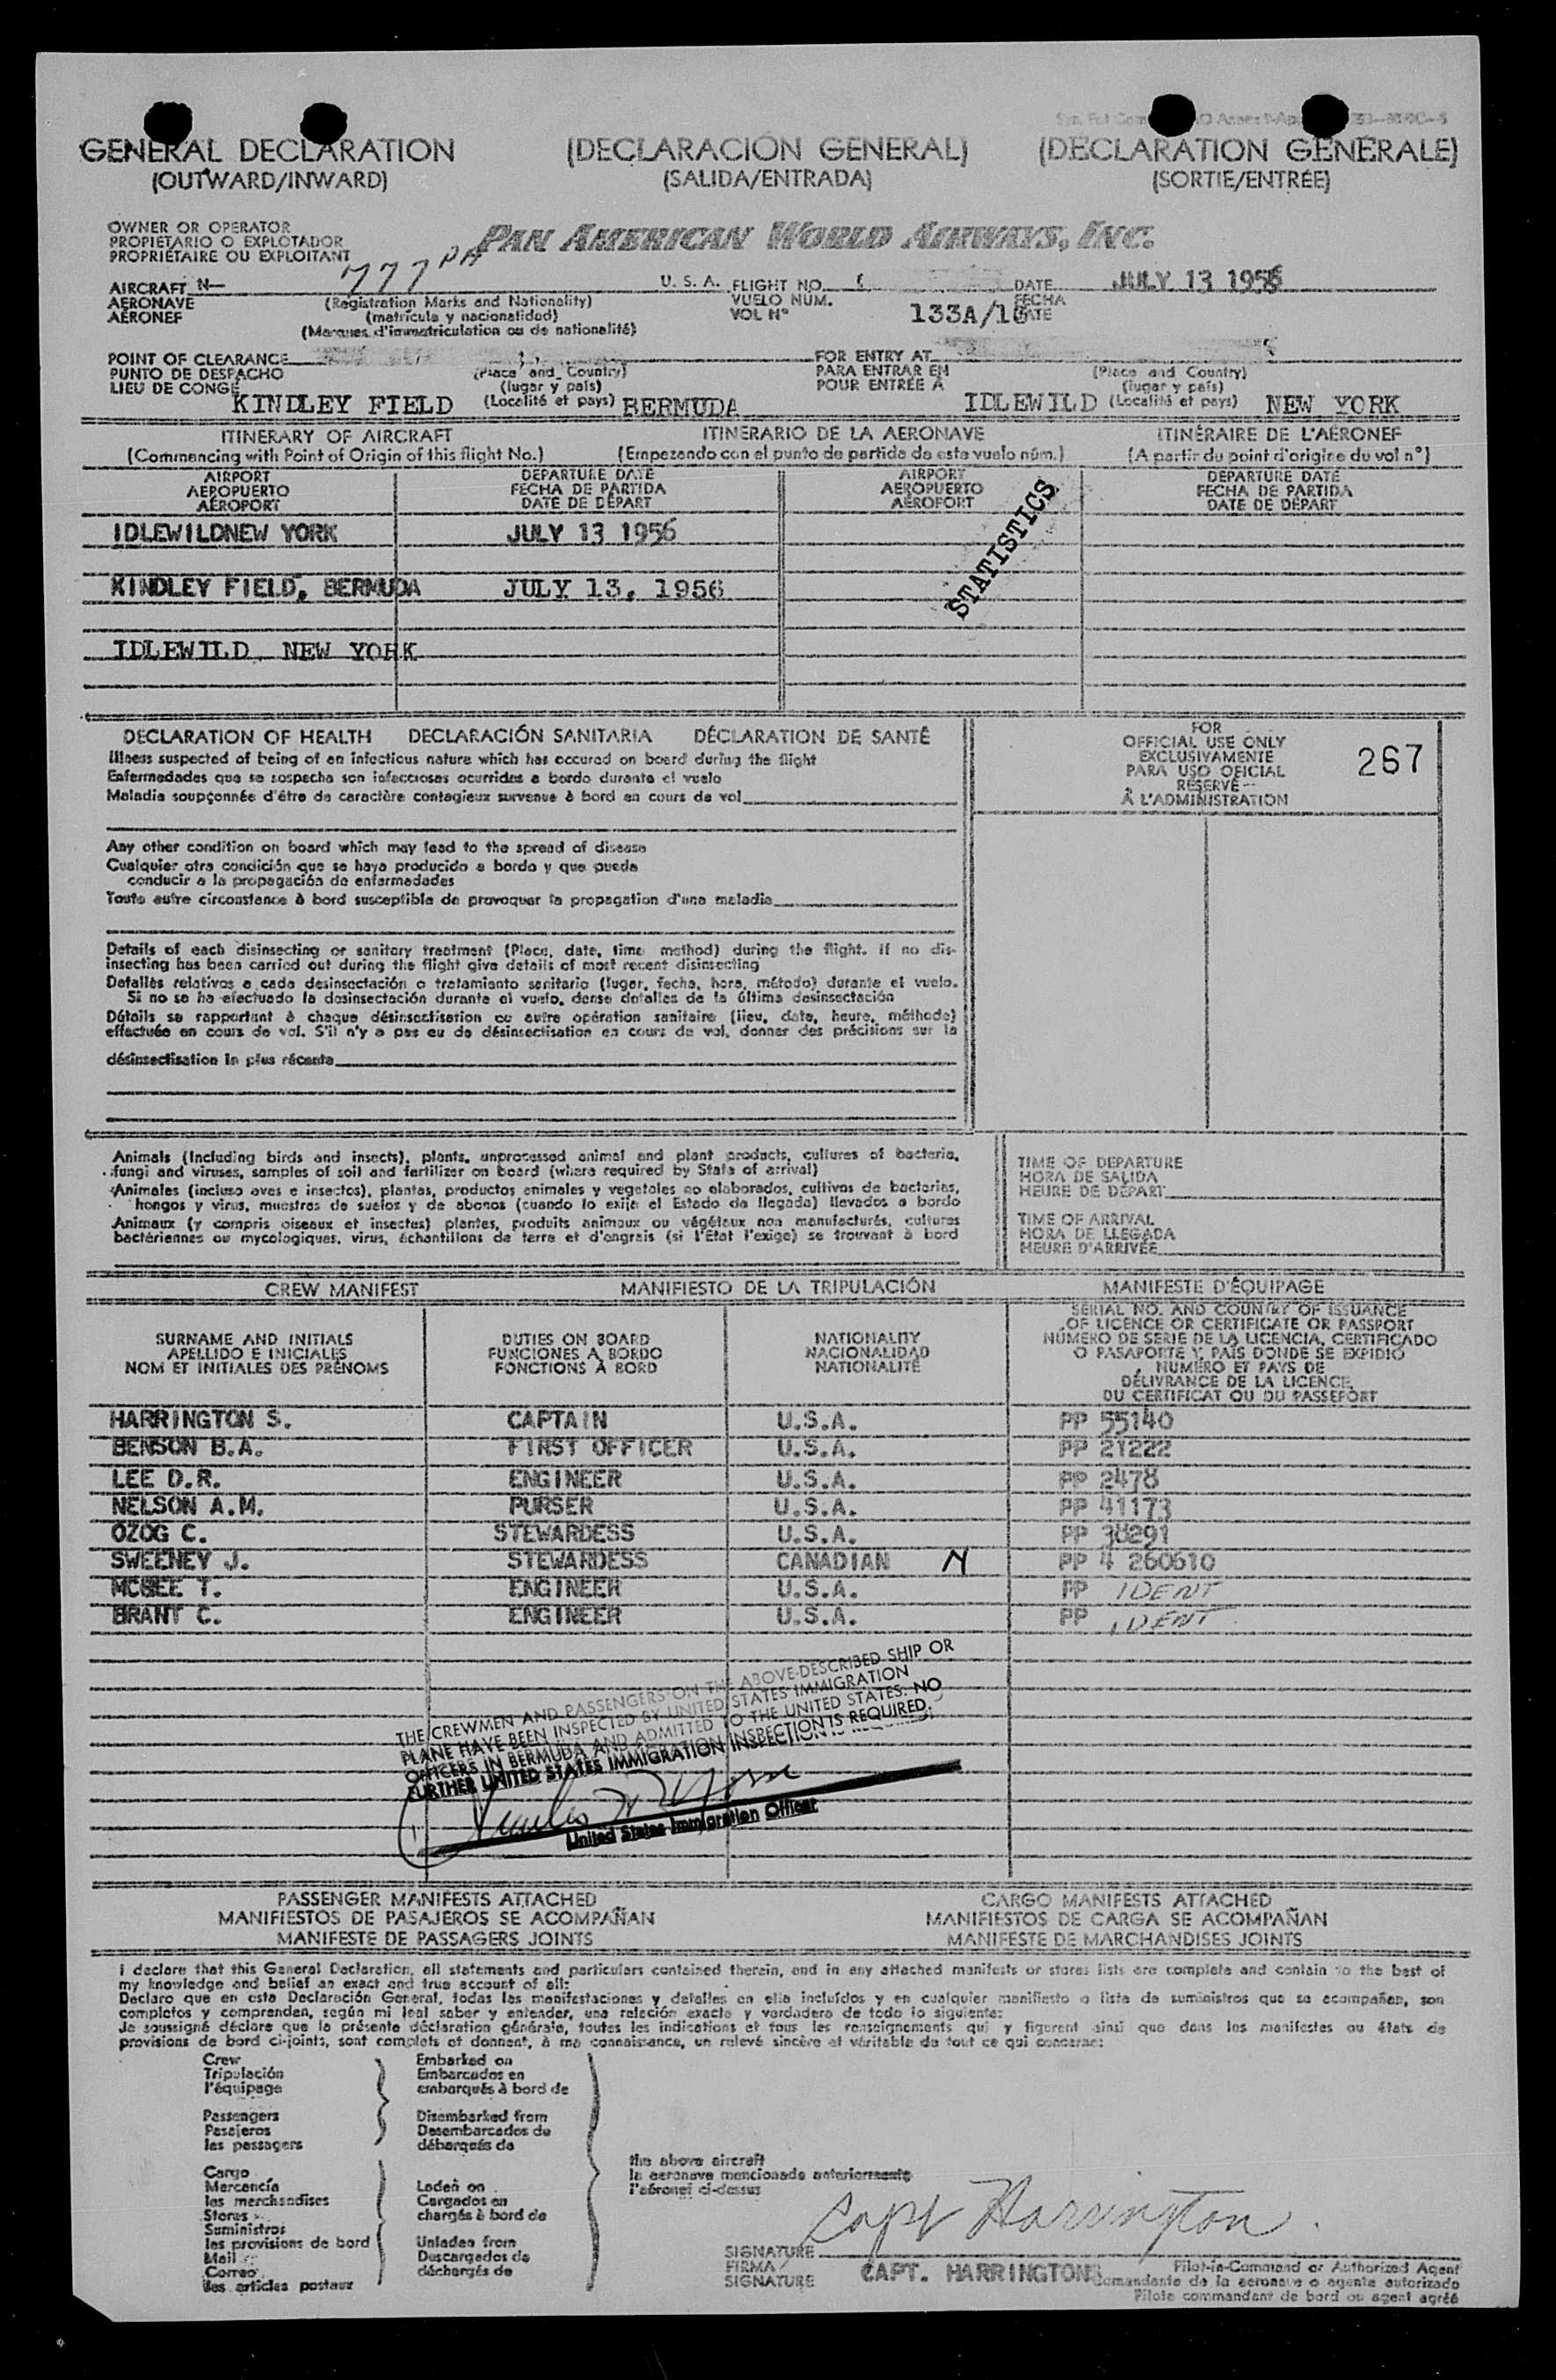 GENERAL DECLARATION (DECLARACIÓN GENERAL) (DÉCLARATION GÉNÉRALE)
(OUTWARD/INWARD) (SALIDA/ENTRADA) (SORTIE/ENTRÉE)
OWNER OR OPERATOR
PROPIETARIO O EXPLOTADOR
PROPRIÉTAIRE OU EXPLOITANT
PAN AMERICAN WORLD AIRWAYS, INC.
AIRCRAFT N— 777 PA U. S. A. FLIGHT NO. DATE JULY 13 1956
AERONAVE (Registration Marks and Nationality) VUELO NUM. FECHA
AÉRONEF (matrícula y nacionalidad) VOL N° 133A/16 DATE
(Marques d'immatriculation ou de nationalité)
POINT OF CLEARANCE FOR ENTRY AT
PUNTO DE DESPACHO (Place and Country) PARA ENTRAR EN (Place and Country)
LIEU DE CONGÉ (lugar y país) POUR ENTRÉE À (lugar y país)
KINDLEY FIELD (Localité et pays) BERMUDA IDLEWILD (Localité et pays) NEW YORK
ITINERARY OF AIRCRAFT ITINERARIO DE LA AERONAVE ITINÉRAIRE DE L'AÉRONEF
(Commencing with Point of Origin of this flight No.) (Empezando con el punto de partida de este vuelo núm.) (A partir du point d'origine du vol n°)
AIRPORT DEPARTURE DATE AIRPORT DEPARTURE DATE
AEROPUERTO FECHA DE PARTIDA AEROPUERTO FECHA DE PARTIDA
AÉROPORT DATE DE DÉPART AÉROPORT DATE DE DÉPART
STATISTICS
IDLEWILDNEW YORK JULY 13 1956
KINDLEY FIELD, BERMUDA JULY 13, 1956
IDLEWILD, NEW YORK
DECLARATION OF HEALTH DECLARACIÓN SANITARIA DÉCLARATION DE SANTÉ
Illness suspected of being of an infectious nature which has occured on board during the flight
Enfermedades que se sospecha son infecciosas ocurridas a bordo durante el vuelo
Maladie soupçonnée d'être de caractère contagieux survenue à bord en cours de vol
FOR
OFFICIAL USE ONLY
EXCLUSIVAMENTE
PARA USO OFICIAL
RÉSERVÉ
À L'ADMINISTRATION
267
Any other condition on board which may lead to the spread of disease
Cualquier otra condición que se haya producido a bordo y que pueda
conducir a la propagación de enfermedades
Toute autre circonstance à bord susceptible de provoquer la propagation d'une maladie
Details of each disinsecting or sanitary treatment (Place, date, time method) during the flight. If no dis-
insecting has been carried out during the flight give details of most recent disinsecting
Detalles relativos a cada desinsectación o tratamiento sanitario (lugar, fecha, hora, método) durante el vuelo.
Si no se ha efectuado la desinsectación durante el vuelo, dense detalles de la última desinsectación
Détails se rapportant à chaque désinsectisation ou autre opération sanitaire (lieu, date, heure, méthode)
effectuée en cours de vol. S'il n'y a pas eu de désinsectisation en cours de vol, donner des précisions sur la
désinsectisation la plus récente
Animals (Including birds and insects), plants, unprocessed animal and plant products, cultures of bacteria,
fungi and viruses, samples of soil and fertilizer on board (where required by State of arrival)
Animales (incluso aves e insectos), plantas, productos animales y vegetales no elaborados, cultivos de bacterias,
hongos y virus, muestras de suelos y de abonos (cuando lo exije el Estado de llegada) llevados a bordo
Animaux (y compris oiseaux et insectes) plantes, produits animaux ou végétaux non manufacturés, cultures
bactériennes ou mycologiques, virus, échantillons de terre et d'engrais (si l'Etat l'exige) se trouvant à bord
TIME OF DEPARTURE
HORA DE SALIDA
HEURE DE DÉPART
TIME OF ARRIVAL
HORA DE LLEGADA
HEURE D'ARRIVÉE
CREW MANIFEST MANIFIESTO DE LA TRIPULACIÓN MANIFESTE D'ÉQUIPAGE
SURNAME AND INITIALS
APELLIDO E INICIALES
NOM ET INITIALES DES PRÉNOMS
DUTIES ON BOARD
FUNCIONES A BORDO
FONCTIONS À BORD
NATIONALITY
NACIONALIDAD
NATIONALITÉ
SERIAL NO. AND COUNTRY OF ISSUANCE
OF LICENCE OR CERTIFICATE OR PASSPORT
NÚMERO DE SERIE DE LA LICENCIA, CERTIFICADO
O PASAPORTE Y PAIS DONDE SE EXPIDIÓ
NUMÉRO ET PAYS DE
DÉLIVRANCE DE LA LICENCE,
DU CERTIFICAT OU DU PASSEPORT
HARRINGTON S. CAPTAIN U.S.A. PP 55140
BENSON B.A. FIRST OFFICER U.S.A. PP 21222
LEE D.R. ENGINEER U.S.A. PP 2478
NELSON A.M. PURSER U.S.A. PP 41173
OZOG C. STEWARDESS U.S.A. PP 38291
SWEENEY J. STEWARDESS CANADIAN N PP 4 260610
MCGEE T. ENGINEER U.S.A. PP IDENT
BRANT C. ENGINEER U.S.A. PP IDENT
THE CREWMEN AND PASSENGERS ON THE ABOVE-DESCRIBED SHIP OR
PLANE HAVE BEEN INSPECTED BY UNITED STATES IMMIGRATION
OFFICERS IN BERMUDA AND ADMITTED TO THE UNITED STATES. NO
FURTHER UNITED STATES IMMIGRATION INSPECTION IS REQUIRED.
United States Immigration Officer
PASSENGER MANIFESTS ATTACHED CARGO MANIFESTS ATTACHED
MANIFIESTOS DE PASAJEROS SE ACOMPAÑAN MANIFIESTOS DE CARGA SE ACOMPAÑAN
MANIFESTE DE PASSAGERS JOINTS MANIFESTE DE MARCHANDISES JOINTS
I declare that this General Declaration, all statements and particulars contained therein, and in any attached manifests or stores lists are complete and contain to the best of
my knowledge and belief an exact and true account of all:
Declaro que en esta Declaración General, todas las manifestaciones y detalles en ella incluídos y en cualquier manifiesto o lista de suministros que se acompañen, son
completos y comprenden, según mi leal saber y entender, una relación exacta y verdadera de todo lo siguiente:
Je soussigné déclare que la présente déclaration générale, toutes les indications et tous les renseignements qui y figurent ainsi que dans les manifestes ou états de
provisions de bord ci-joints, sont complets et donnent, à ma connaissance, un relevé sincère et véritable de tout ce qui concerne:
Crew Embarked on
Tripulación Embarcados en
l'équipage embarqués à bord de
Passengers Disembarked from
Pasajeros Desembarcados de
les passagers débarqués de
the above aircraft
la aeronave mencionada anteriormente
l'aéronef ci-dessus
Cargo
Mercancía Laden on
les merchandises Cargados en
Stores chargés à bord de
Suministros
les provisions de bord Unladen from
Mail Descargados de
Correo déchargés de
les articles postaux
Capt Harrington
SIGNATURE
FIRMA CAPT. HARRINGTON Pilot-in-Command or Authorized Agent
SIGNATURE Comandante de la aeronave o agente autorizado
Pilote commandant de bord ou agent agréé